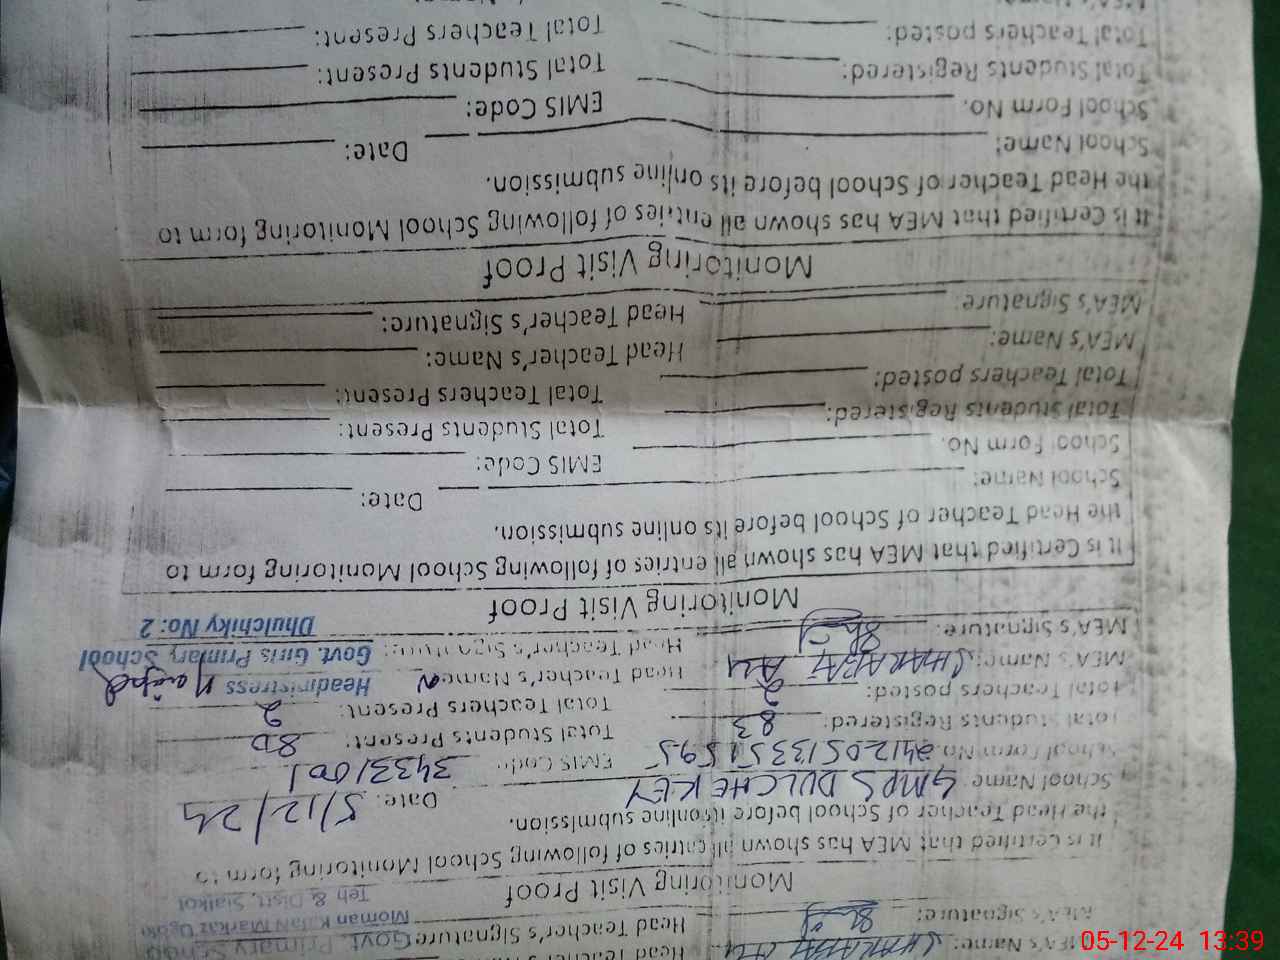 MEA's Name: SHARAFAT ALI Head Teacher's
MEA's Signature: Head Teacher's Signature Govt. Primary School
Moman Kalan Markaz Ugoki
Teh & Distt. Sialkot
Monitoring Visit Proof
It is Certified that MEA has shown all entries of following School Monitoring form to
the Head Teacher of School before its online submission.
School Name GMPS DULCHEKEY Date: 5/12/24
School Form No. 24120513351595 EMIS Code: 34331001
Total Students Registered: 83 Total Students Present: 80
Total Teachers posted: 2 Total Teachers Present: 2
MEA's Name: SHARAFAT ALI Head Teacher's Name Headmistress
MEA's Signature: Head Teacher's Signature: Govt. Girls Primary School
Dhulchiky No: 2
Monitoring Visit Proof
It is Certified that MEA has shown all entries of following School Monitoring form to
the Head Teacher of School before its online submission.
School Name: Date:
School Form No. EMIS Code:
Total Students Registered: Total Students Present:
Total Teachers posted: Total Teachers Present:
MEA's Name: Head Teacher's Name:
MEA's Signature: Head Teacher's Signature:
Monitoring Visit Proof
It is Certified that MEA has shown all entries of following School Monitoring form to
the Head Teacher of School before its online submission.
School Name: Date:
School Form No. EMIS Code:
Total Students Registered: Total Students Present:
Total Teachers posted: Total Teachers Present:
05-12-24 13:39